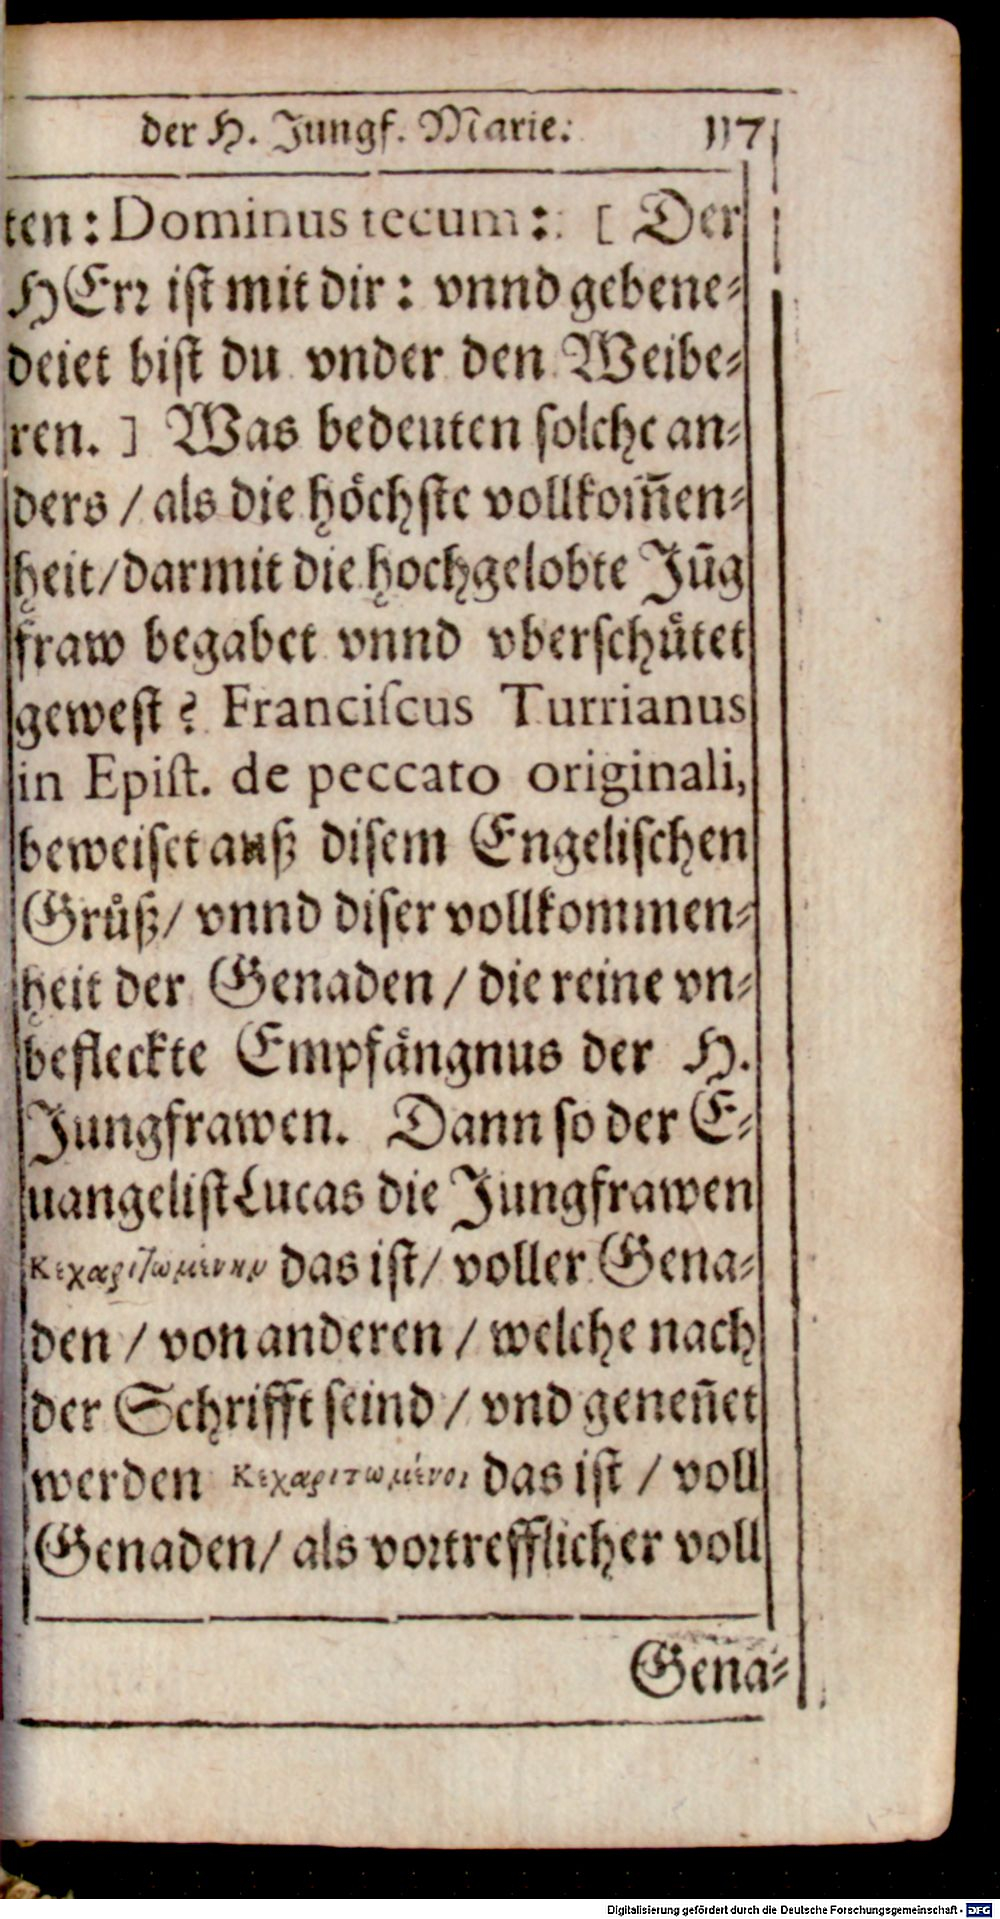 der H. Jungf. Marie. 117
ten: Dominus tecum: [ Der
HErꝛ ist mit dir: vnnd gebene⸗
deiet bist du vnder den Weibe⸗
ren. ] Was bedeuten solche an⸗
ders / als die höchste vollkom̃en⸗
heit/darmit die hochgelobte Jũg
fraw begabet vnnd vberschütet
gewest? Franciſcus Turrianus
in Epiſt. de peccato originali,
beweiset auß disem Engelischen
Grůß/ vnnd diser vollkommen⸗
heit der Genaden / die reine vn⸗
befleckte Empfängnus der H.
Jungfrawen. Dann so der E⸗
uangelist Lucas die Jungfrawen
Κεχαριτωμένην das ist/ voller Gena⸗
den / von anderen / welche nach
der Schrifft seind / vnd geneñet
werden Κεχαριτωμένοι das ist / voll
Genaden/ als vortrefflicher voll
Gena⸗
Digitalisierung gefördert durch die Deutsche Forschungsgemeinschaft - DFG